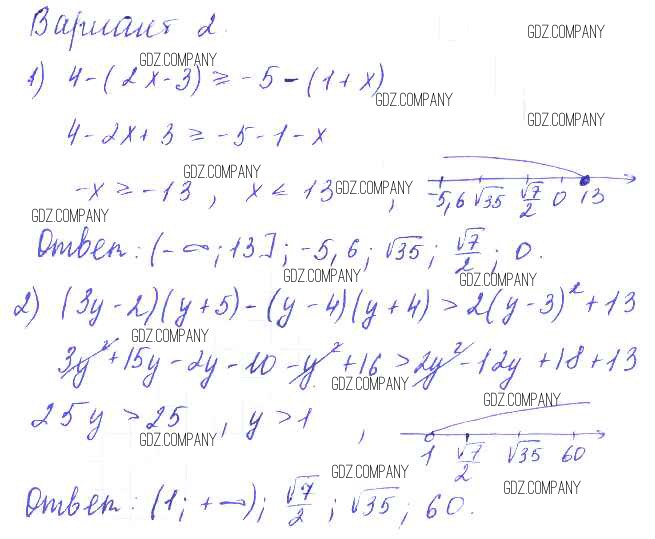 Вариант 2.
GDZ.COMPANY
GDZ.COMPANY
1) 4-(2x-3) ≥ -5-(1+x)
GDZ.COMPANY
GDZ.COMPANY
4-2x+3 ≥ -5-1-x
GDZ.COMPANY
-x ≥ -13, x ≤ 13,
GDZ.COMPANY
-5,6 √35 √7/2 0 13
GDZ.COMPANY
Ответ: (-∞; 13]; -5,6; √35; √7/2; 0.
GDZ.COMPANY
GDZ.COMPANY
2) (3y-2)(y+5)-(y-4)(y+4) > 2(y-3)²+13
GDZ.COMPANY
3y²+15y-2y-10-y²+16 > 2y²-12y+18+13
GDZ.COMPANY
GDZ.COMPANY
25y > 25, y > 1,
GDZ.COMPANY
1 √7/2 √35 60
GDZ.COMPANY
GDZ.COMPANY
Ответ: (1; +∞); √7/2; √35; 60.